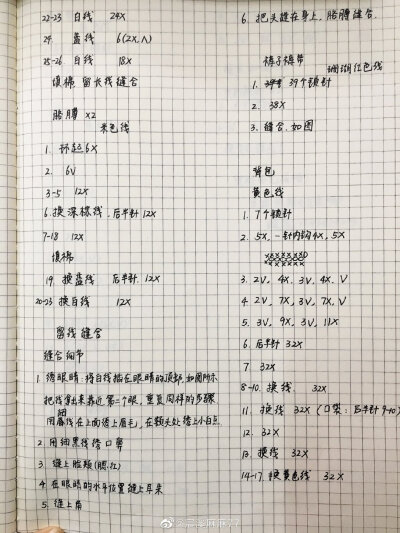 22-23 白线 24X
24. 蓝线 6(2X,A)
25-26 白线 18X
填棉 留长线缝合
胳膊 X2
米色线
1. 环起6X
2. 6V
3-5 12X
6.换深棕线,后半针12X
7-18 12X
填棉
19. 换蓝线 后半针.12X
20-23 换白线 12X
留线缝合
缝合细节
1. 绣眼睛:将白线插在眼睛的顶部,如图所示
把线拿出来靠近第二个眼,重复同样的步骤
用细眉线在上面绣上眉毛,在额头处绣上小白点
2. 用细黑线绣口鼻
3. 缝上脸颊(腮红)
4. 在眼睛的水平位置缝上耳朵
5. 缝上角
6. 把头缝在身上,胳膊缝合.
裤子裤带
珊瑚红色线
1. 39个锁针
2. 38X
3. 缝合.如图
背包
黄色线
1. 7个锁针
2. 5X,一针内钩4X,5X
3. 2V,4X,3V,4X,V
4. 2V,7X,3V,7X,V
5. 3V,9X,3V,11X
6. 后半针 32X
7. 32X
8-10. 换线. 32X
11. 换线 32X(口袋:后半针9-10)
12. 32X
13. 换线 32X
14-17. 换黄色线 32X